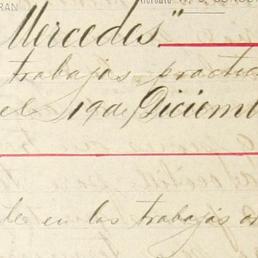 RAN
Mercedes"
trabajos practic
el 19 de Diciemb
de en los trabajos